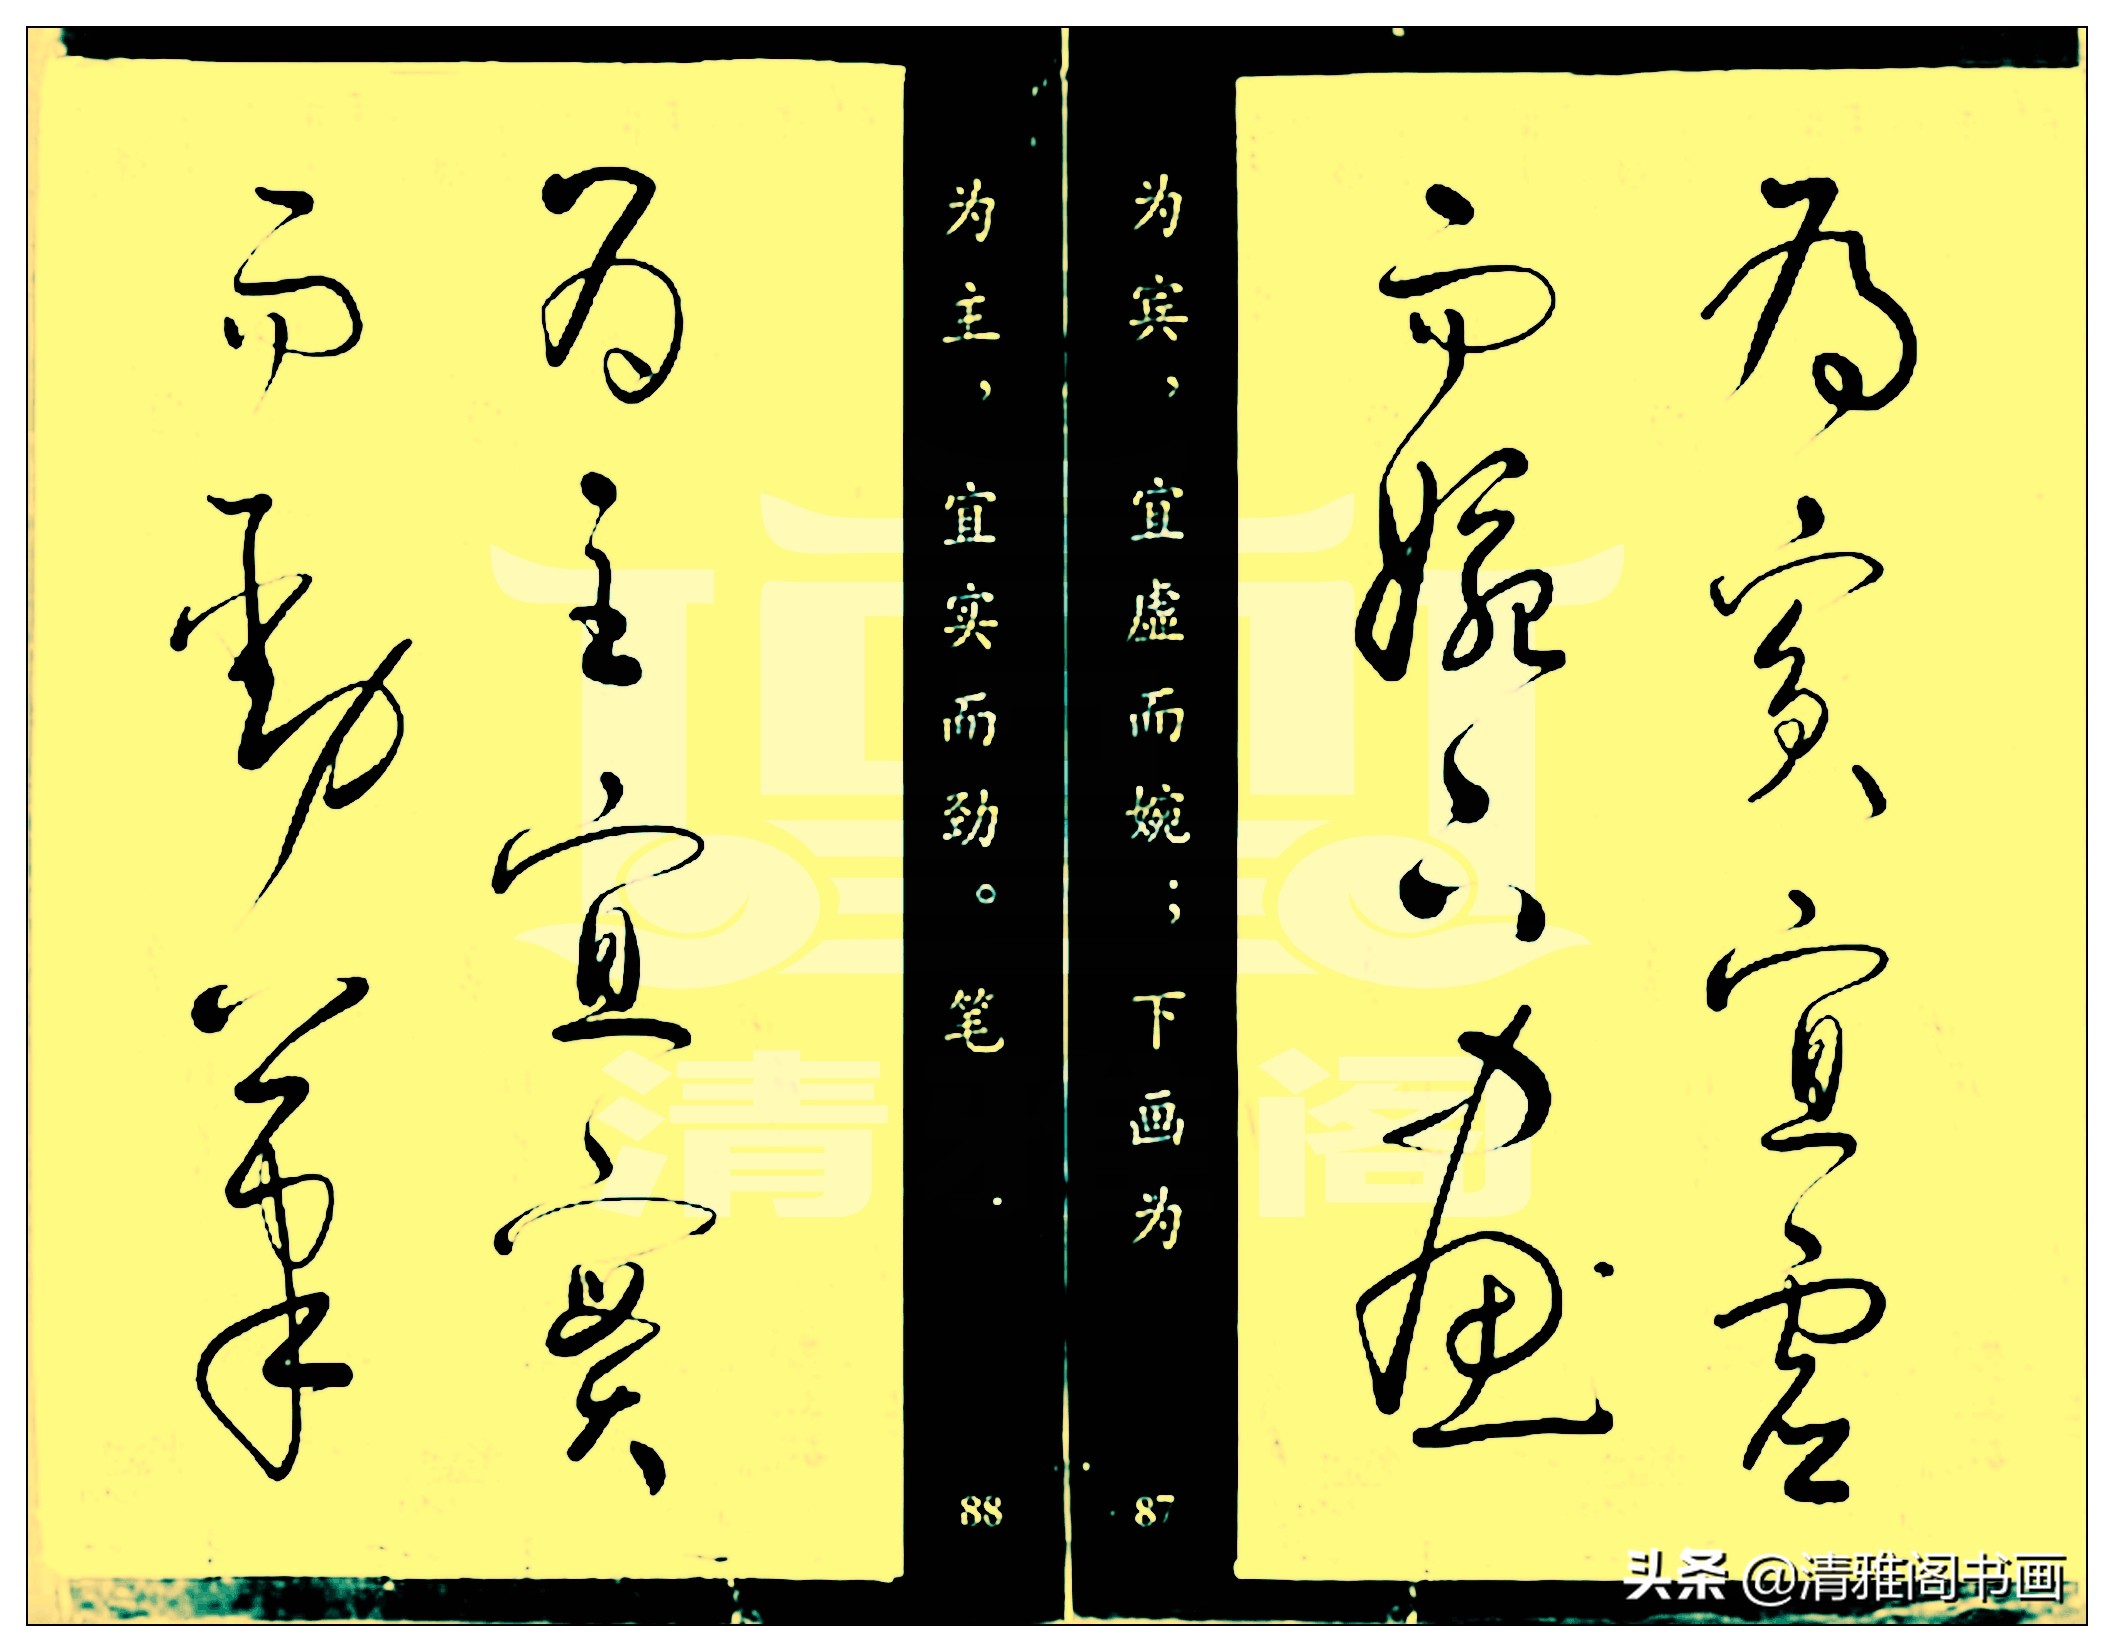 為賓宜虛
而婉下畫
为宾，宜虚而婉；下画为
87
为主，宜实而劲。笔
88
為主宜實
而勁筆
清 阁
头条 @清雅阁书画